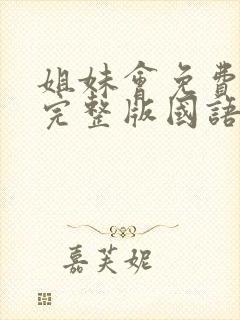 姐妹會免費
完整版國語
嘉芙妮